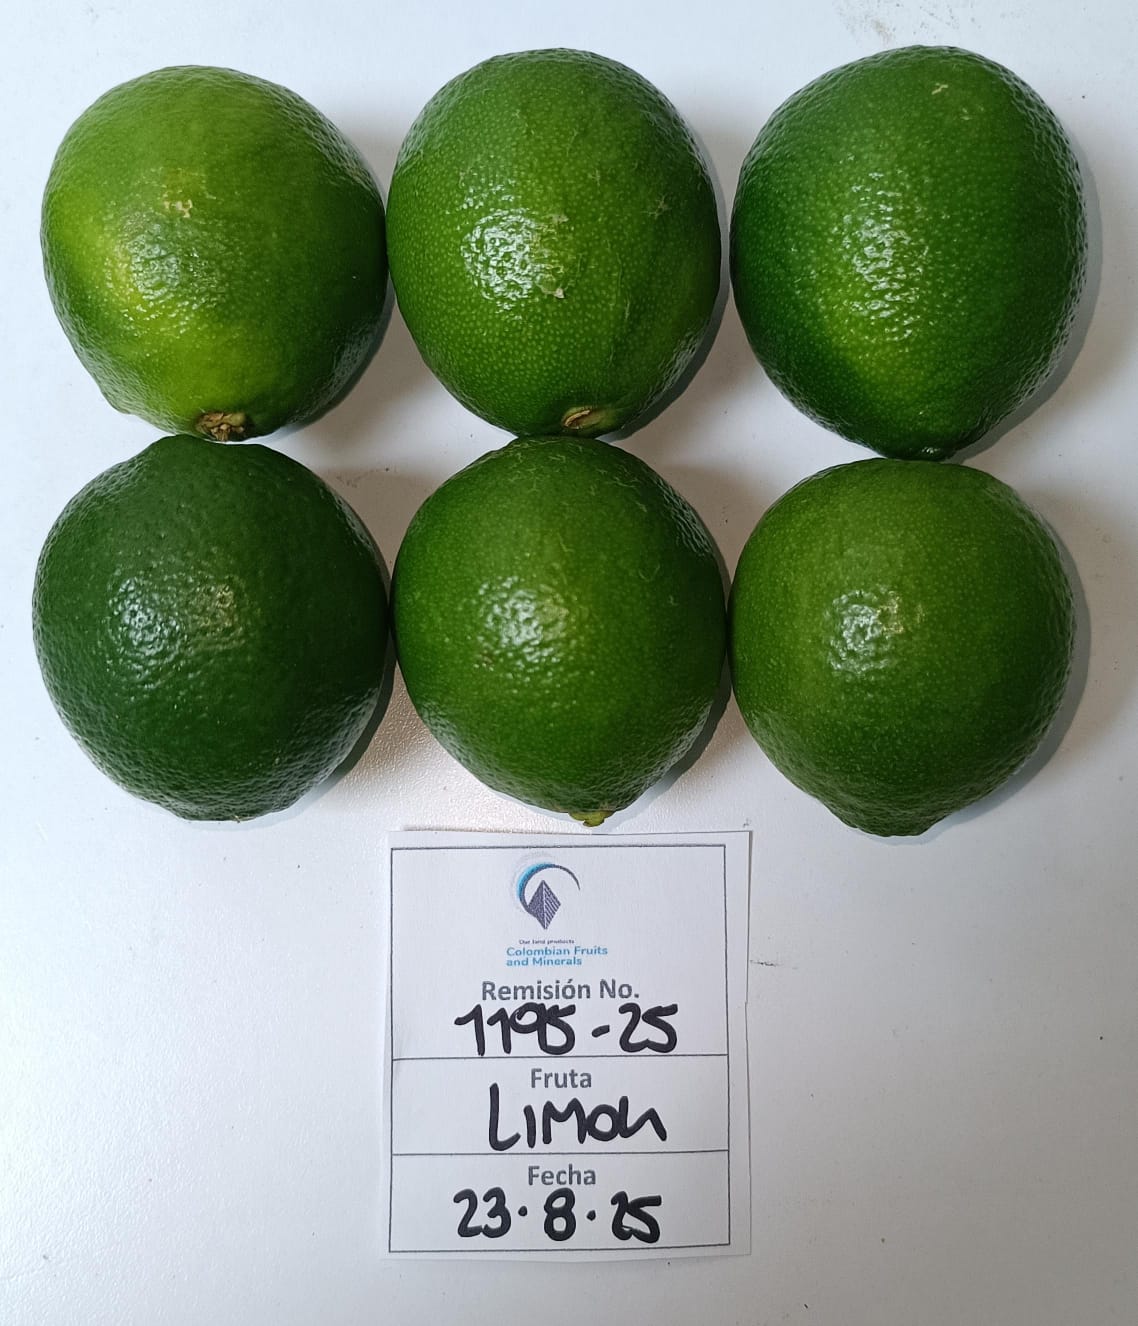 Our land products
Colombian Fruits
and Minerals
Remisión No.
1195-25
Fruta
LIMON
Fecha
23.8.25